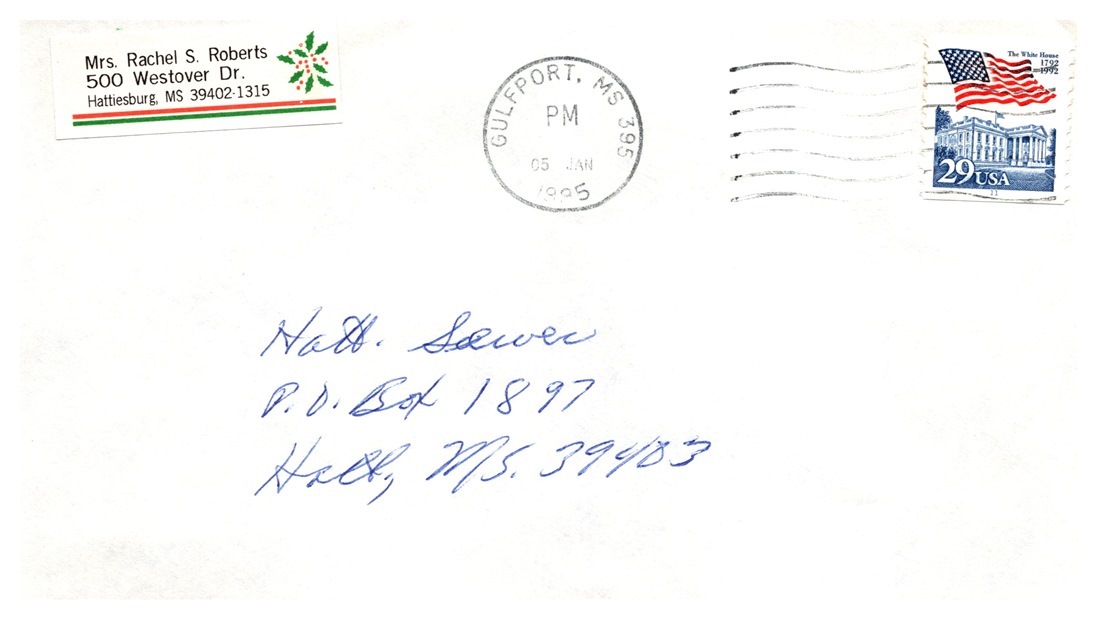 Mrs. Rachel S. Roberts
500 Westover Dr.
Hattiesburg, MS 39402-1315
GULFPORT, MS 395
PM
05 JAN
1995
The White House
1792
1992
29 USA
11
Hatt. Sewer
P.O. Box 1897
Hatt, MS. 39403